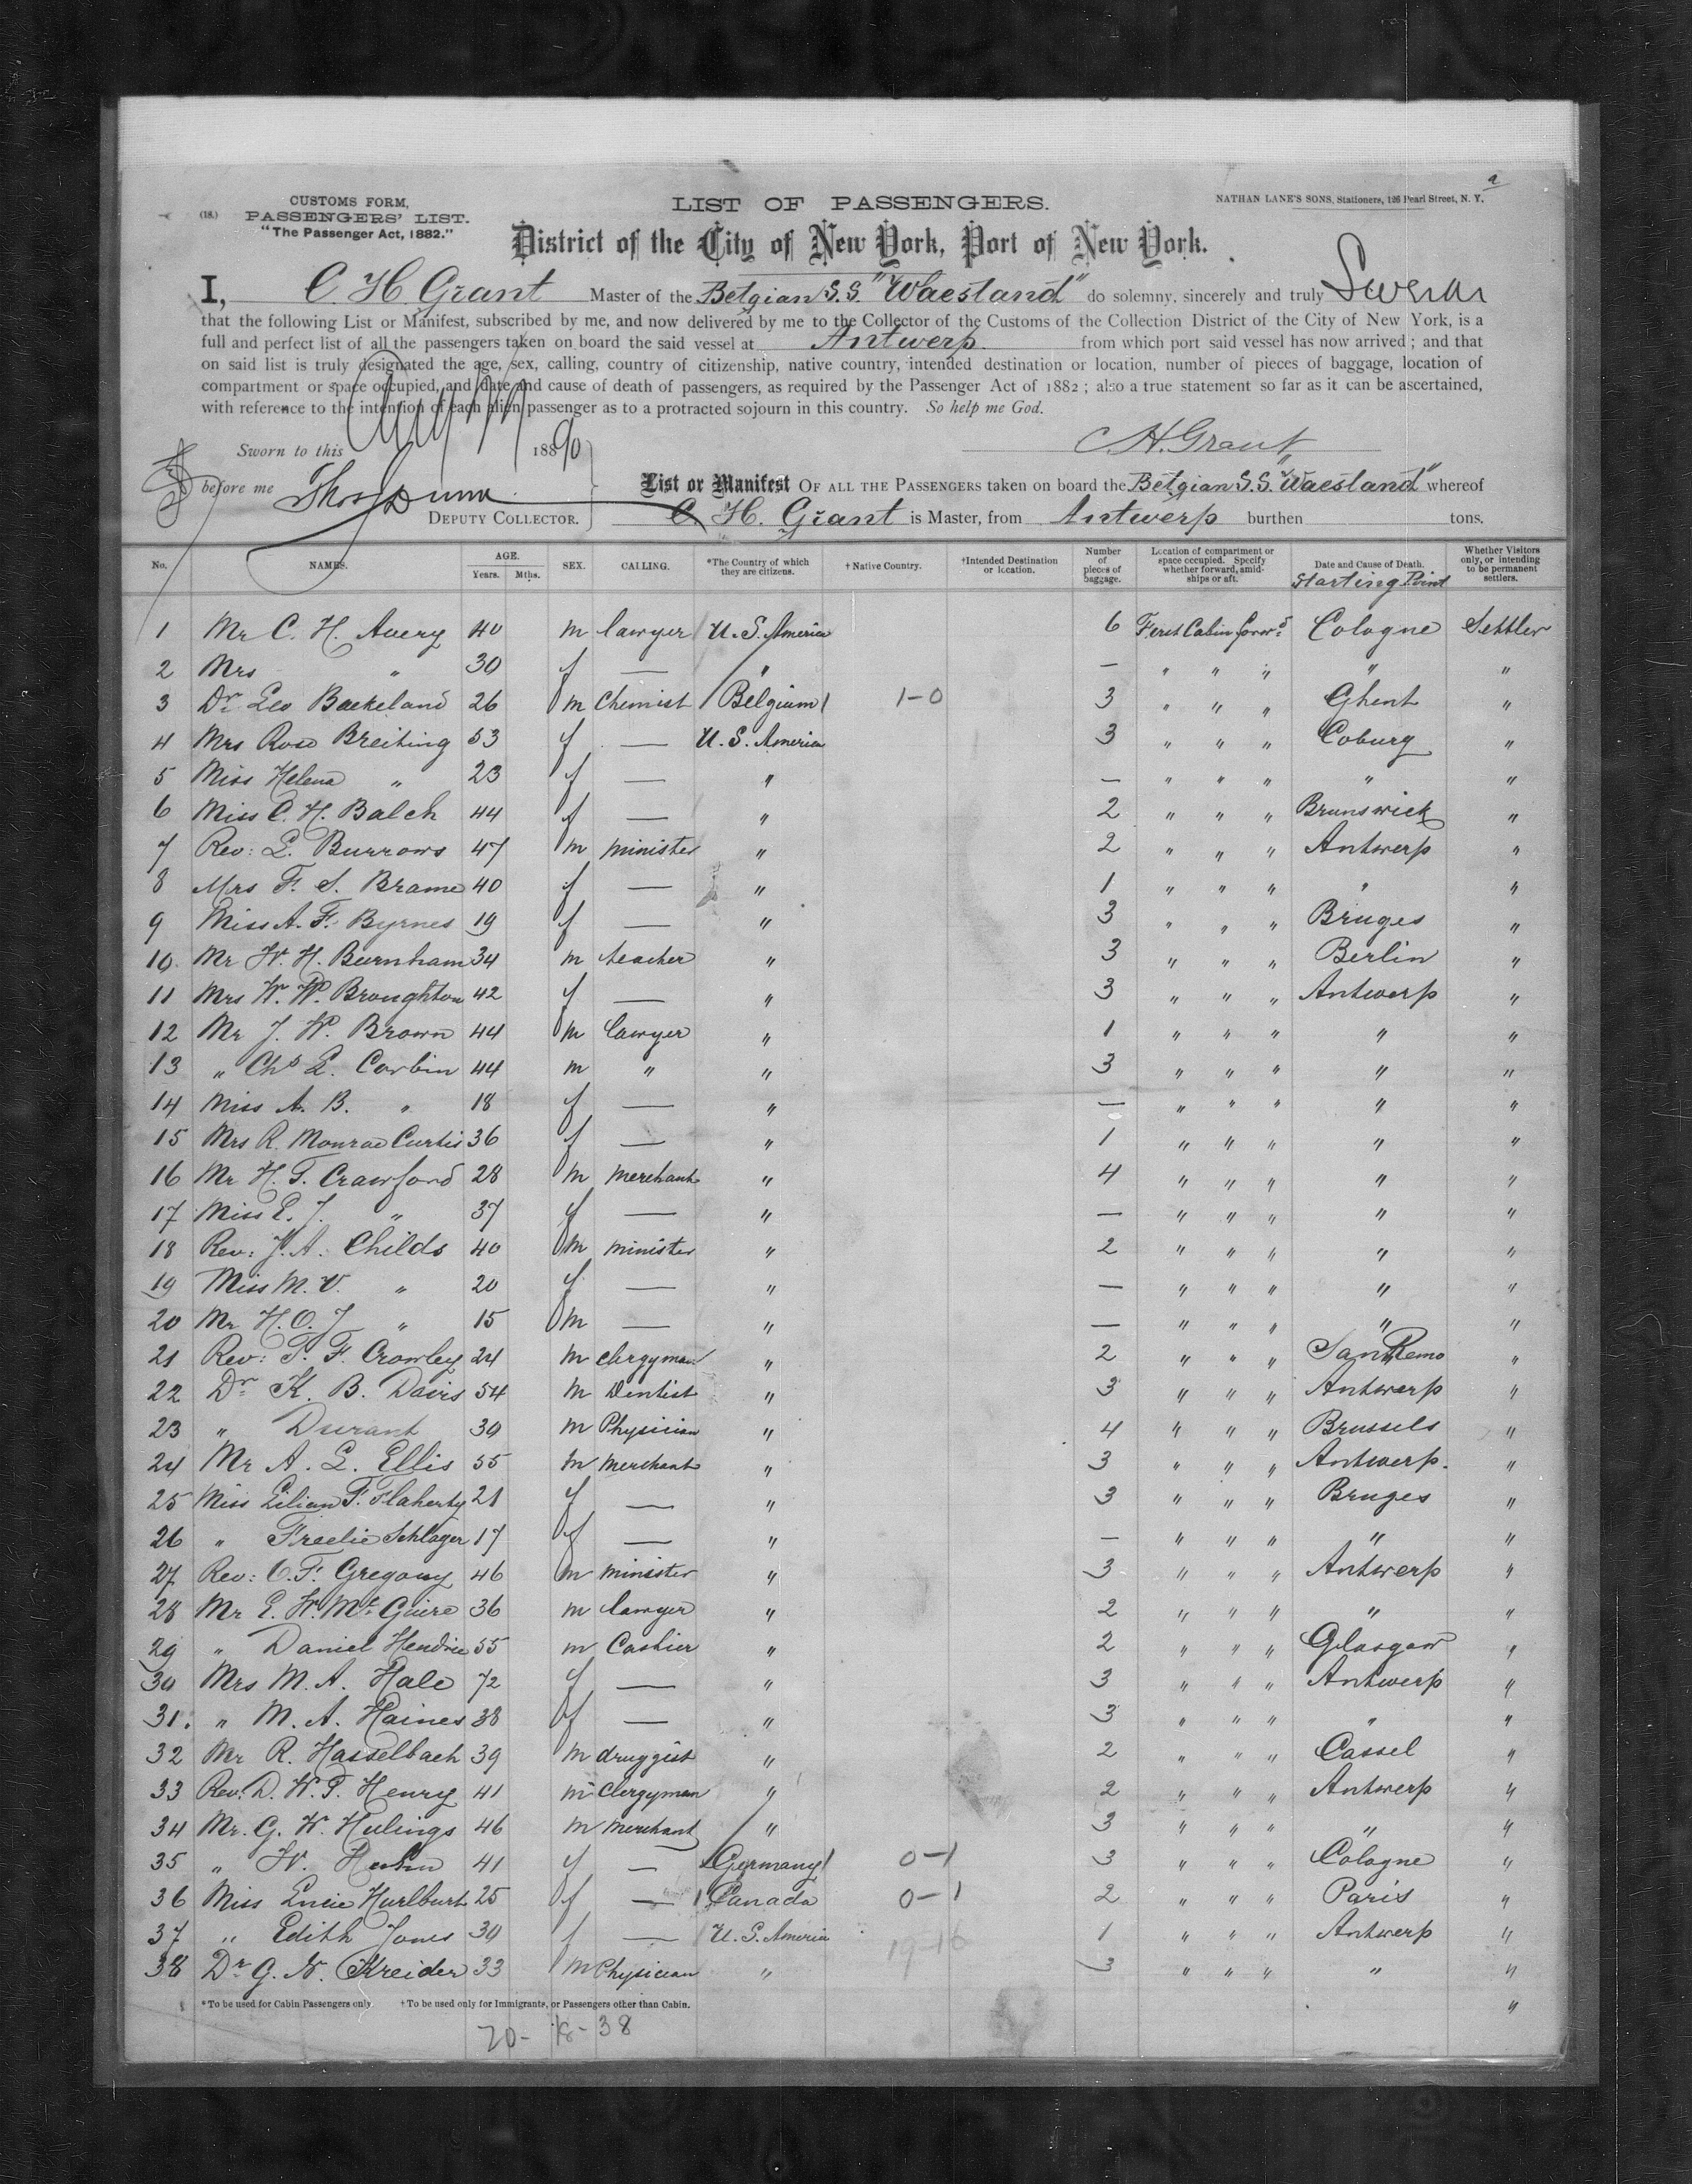 a
CUSTOMS FORM,
(18.) PASSENGERS' LIST.
"The Passenger Act, 1882."
LIST OF PASSENGERS.
NATHAN LANE'S SONS, Stationers, 126 Pearl Street, N. Y.
District of the City of New York, Port of New York.
I, C. H. Grant Master of the Belgian S.S. "Waesland" do solemny, sincerely and truly Swear
that the following List or Manifest, subscribed by me, and now delivered by me to the Collector of the Customs of the Collection District of the City of New York, is a
full and perfect list of all the passengers taken on board the said vessel at Antwerp from which port said vessel has now arrived; and that
on said list is truly designated the age, sex, calling, country of citizenship, native country, intended destination or location, number of pieces of baggage, location of
compartment or space occupied, and date and cause of death of passengers, as required by the Passenger Act of 1882; also a true statement so far as it can be ascertained,
with reference to the intention of each alien passenger as to a protracted sojourn in this country. So help me God.
C. H. Grant
Sworn to this Aug 1890
before me
DEPUTY COLLECTOR.
List or Manifest OF ALL THE PASSENGERS taken on board the Belgian S.S. "Waesland" whereof
C H. Grant is Master, from Antwerp burthen tons.
No. NAMES. AGE. Years. Mths. SEX. CALLING. *The Country of which they are citizens. †Native Country. †Intended Destination or location. Number of pieces of baggage. Location of compartment or space occupied. Specify whether forward, amidships or aft. Date and Cause of Death. Starting Point Whether Visitors only, or intending to be permanent settlers.
1 Mr C. H. Avery 40 m lawyer U. S. America 6 First Cabin forwd Cologne Settler
2 Mrs " 30 f — " — " " " " "
3 Dr Leo Baekeland 26 m Chemist Belgium 1-0 3 " " " Ghent "
4 Mrs Rosa Breiting 53 f — U. S. America 3 " " " Coburg "
5 Miss Helena " 23 f — " — " " " " "
6 Miss C. H. Balch 44 f — " 2 " " " Brunswick "
7 Rev: L. Burrows 47 m minister " 2 " " " Antwerp "
8 Mrs F. S. Brame 40 f — " 1 " " " " "
9 Miss A. F. Byrnes 19 f — " 3 " " " Bruges "
10. Mr W. H. Burnham 34 m teacher " 3 " " " Berlin "
11 Mrs W. W. Broughton 42 f — " 3 " " " Antwerp "
12 Mr J. W. Brown 44 m lawyer " 1 " " " " "
13 " Chs L. Corbin 44 m " " 3 " " " " "
14 Miss A. B. " 18 f — " — " " " " "
15 Mrs R. Monroe Curtis 36 f — " 1 " " " " "
16 Mr H. T. Crawford 28 m merchant " 4 " " " " "
17 Miss E. J. " 37 f — " — " " " " "
18 Rev: J. A. Childs 40 m minister " 2 " " " " "
19 Miss M. V. " 20 f — " — " " " " "
20 Mr H. O. J " 15 m — " — " " " " "
21 Rev: T. F. Crowley 24 m clergyman " 2 " " " San Remo "
22 Dr K. B. Davis 54 m Dentist " 3 " " " Antwerp "
23 " Durant 39 m Physician " 4 " " " Brussels "
24 Mr A. L. Ellis 55 m merchant " 3 " " " Antwerp. "
25 Miss Lilian F. Flaherty 21 f — " 3 " " " Bruges "
26 " Schlager 17 f — " — " " " " "
27 Rev: O. F. Gregory 46 m minister " 3 " " " Antwerp "
28 Mr E. W. McGuire 36 m lawyer " 2 " " " " "
29 " Daniel Hendrie 55 m Cashier " 2 " " " Glasgow "
30 Mrs M. A. Hale 72 f — " 3 " " " Antwerp "
31. " M. A. Haines 38 f — " 3 " " " " "
32 Mr R. Hasselbach 39 m druggist " 2 " " " Cassel "
33 Rev: D. W. T. Henry 41 m Clergyman " 2 " " " Antwerp "
34 Mr. G. W. Hulings 46 m merchant " 3 " " " " "
35 " W. 41 f — Germany 0-1 3 " " " Cologne "
36 Miss Hurlburt 25 f — Canada 0-1 2 " " " Paris "
37 " Edith Jones 39 f — U. S. America 1 " " " Antwerp "
38 Dr G. N. Kreider 33 m Physician " 19-16 3 " " " " "
"
*To be used for Cabin Passengers only. †To be used only for Immigrants, or Passengers other than Cabin.
20- 18- 38